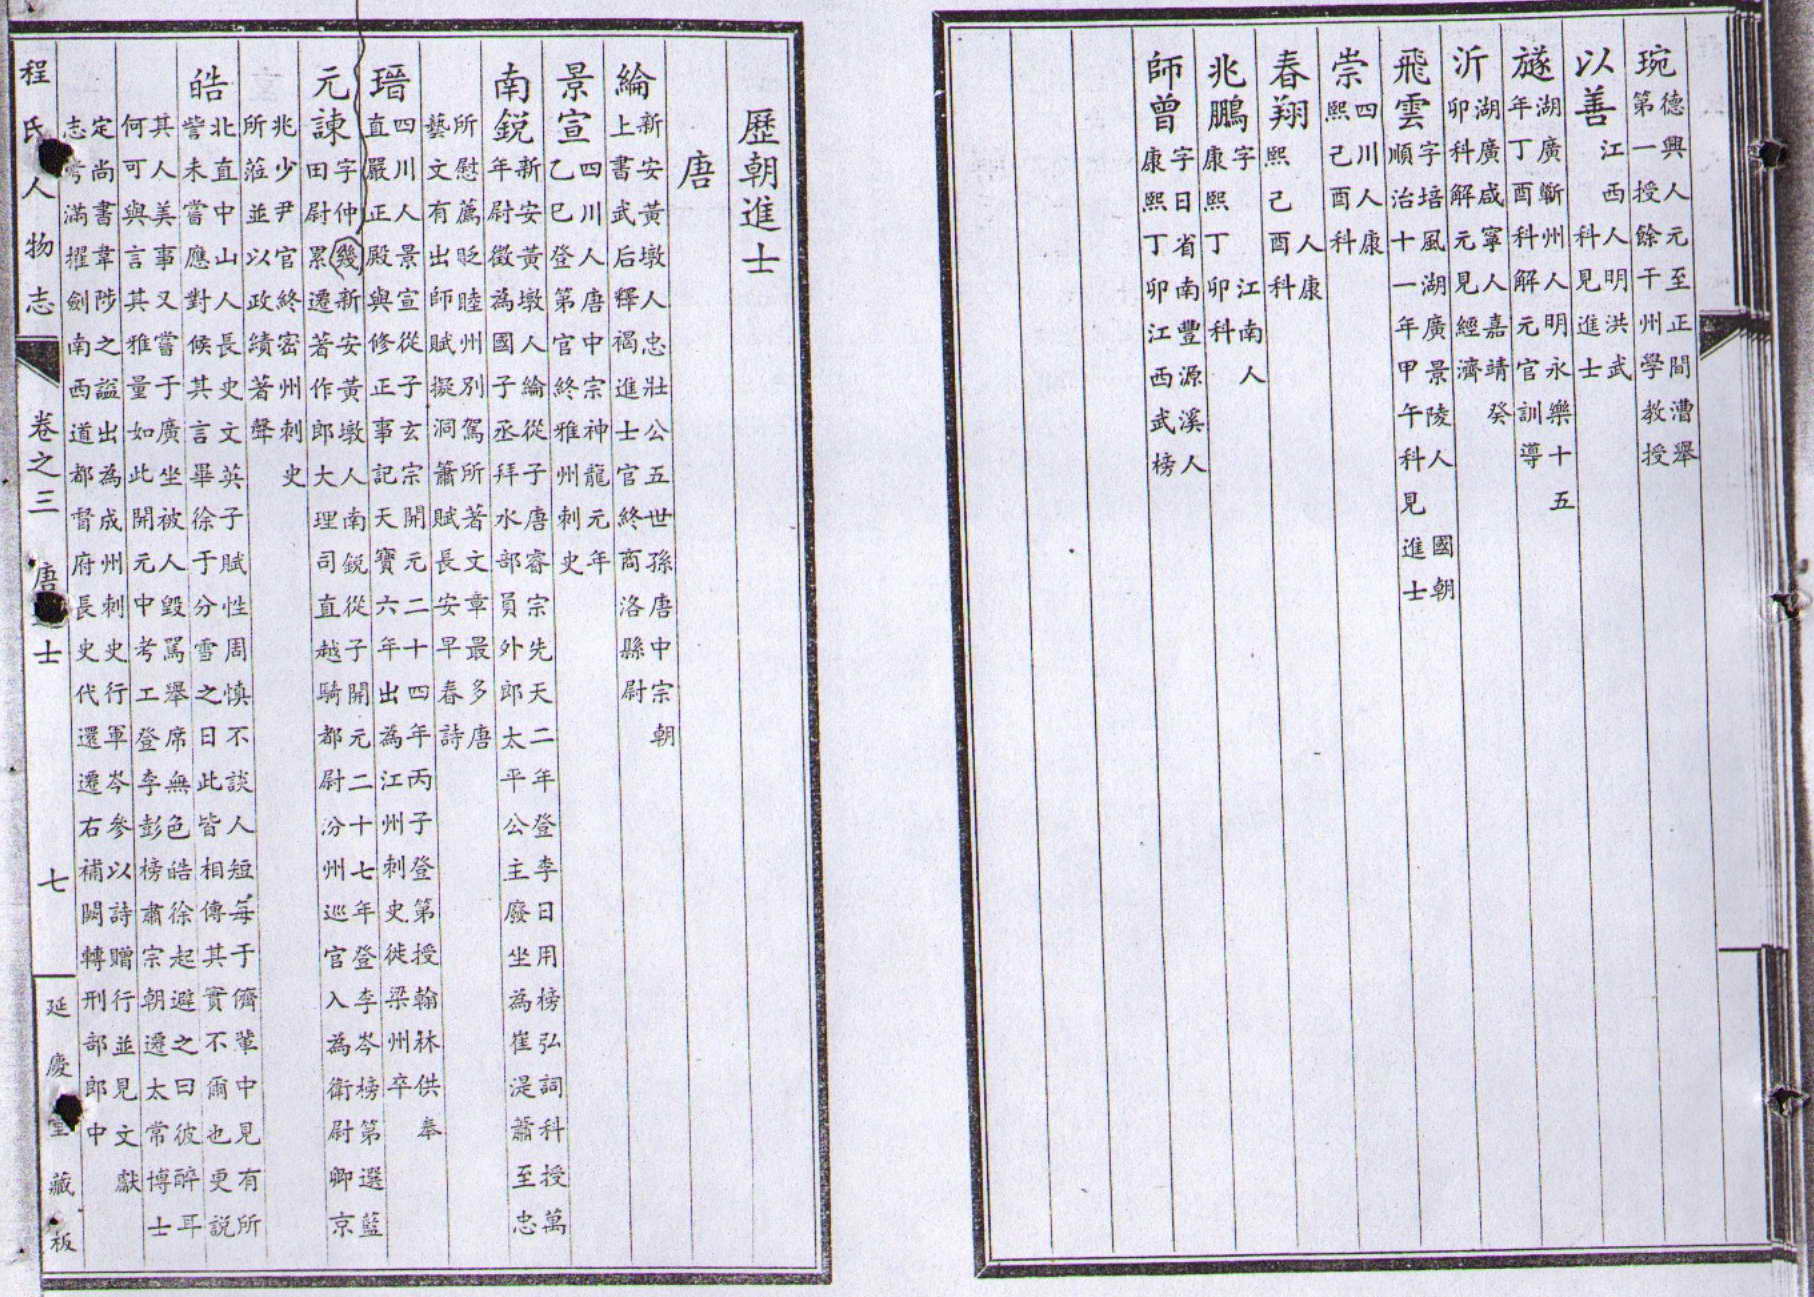 琬
德興人元至正間漕舉
第一授餘干州學教授
以善
江西人明洪武
科見進士
旞
湖廣蘄州人明永樂十五
年丁酉科解元官訓導
沂
湖廣咸寧人嘉靖癸
卯科解元見經濟
飛雲
字培風湖廣景陵人國朝
順治十一年甲午科見進士
崇
四川人康
熙己酉科
春翔
人康
熙己酉科
兆鵬
字 江南人
康熙丁卯科
師曾
字日省南豐源溪人
康熙丁卯江西武榜
歷朝進士
唐
綸
新安黃墩人忠壯公五世孫唐中宗朝
上書武后釋褐進士官終商洛縣尉
景宣
四川人唐中宗神龍元年
乙巳登第官終雅州刺史
南銳
新安黃墩人綸從子唐睿宗先天二年登李日用榜弘詞科授萬
年尉徵為國子丞拜水部員外郎太平公主廢坐為崔湜蕭至忠
所慰薦貶睦州別駕所著文章最多唐
藝文有出師賦擬洞簫賦長安早春詩
瑨
四川人景宣從子玄宗開元二十四年丙子登第授翰林供奉
直嚴正殿與修正事記天寶六年出為江州刺史徙梁州卒
元諫
字仲幾新安黃墩人南銳從子開元二十七年登李岑榜第選藍
田尉累遷著作郎大理司直越騎都尉汾州巡官入為衛尉卿京
兆少尹官終密州刺史
所蒞並以政績著聲
皓
北直中山人長史文英子賦性周慎不談人短每于儕輩中見有所
訾未嘗應對候其言畢徐于分雪之曰此皆相傳其實不爾也更説
其人美事又嘗于廣坐被人毀罵舉席無色皓徐起避之曰彼醉耳
何可與言其雅量如此開元中考工登李彭榜肅宗朝遷太常博士
定尚書韋陟之謚出為成州刺史行軍岑參以詩贈行並見文獻
志考滿擢劍南西道都督府長史代還遷右補闕轉刑部郎中
程氏人物志
卷之三 唐 士
七
延慶堂藏板